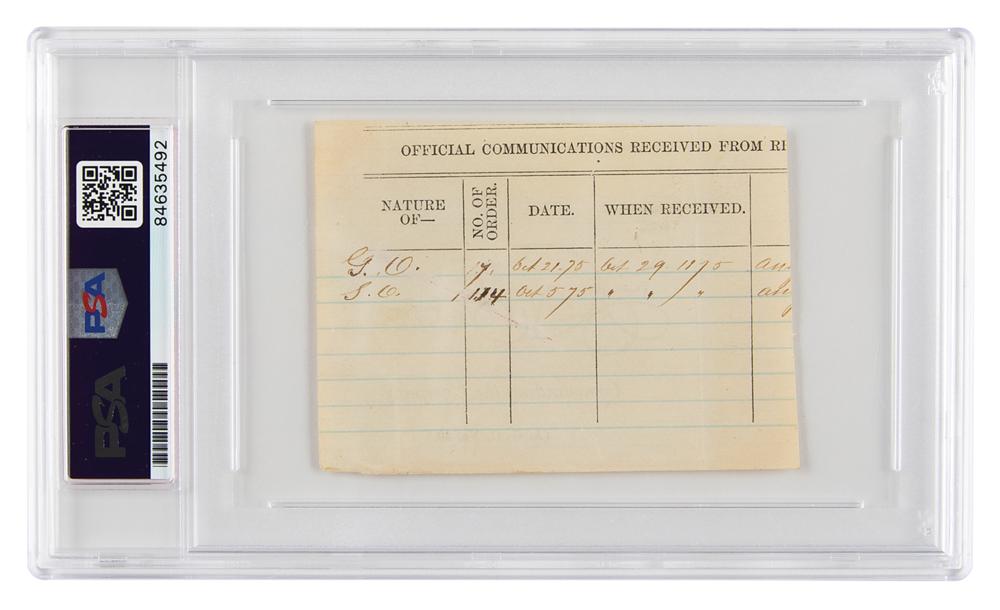 84635492
PSA
PSA
OFFICIAL COMMUNICATIONS RECEIVED FROM
NATURE OF—
NO. OF ORDER.
DATE.
WHEN RECEIVED.
G. O. 17, Oct 21-75 Oct 29 1875
S. O. 114 Oct 5 75 " " "